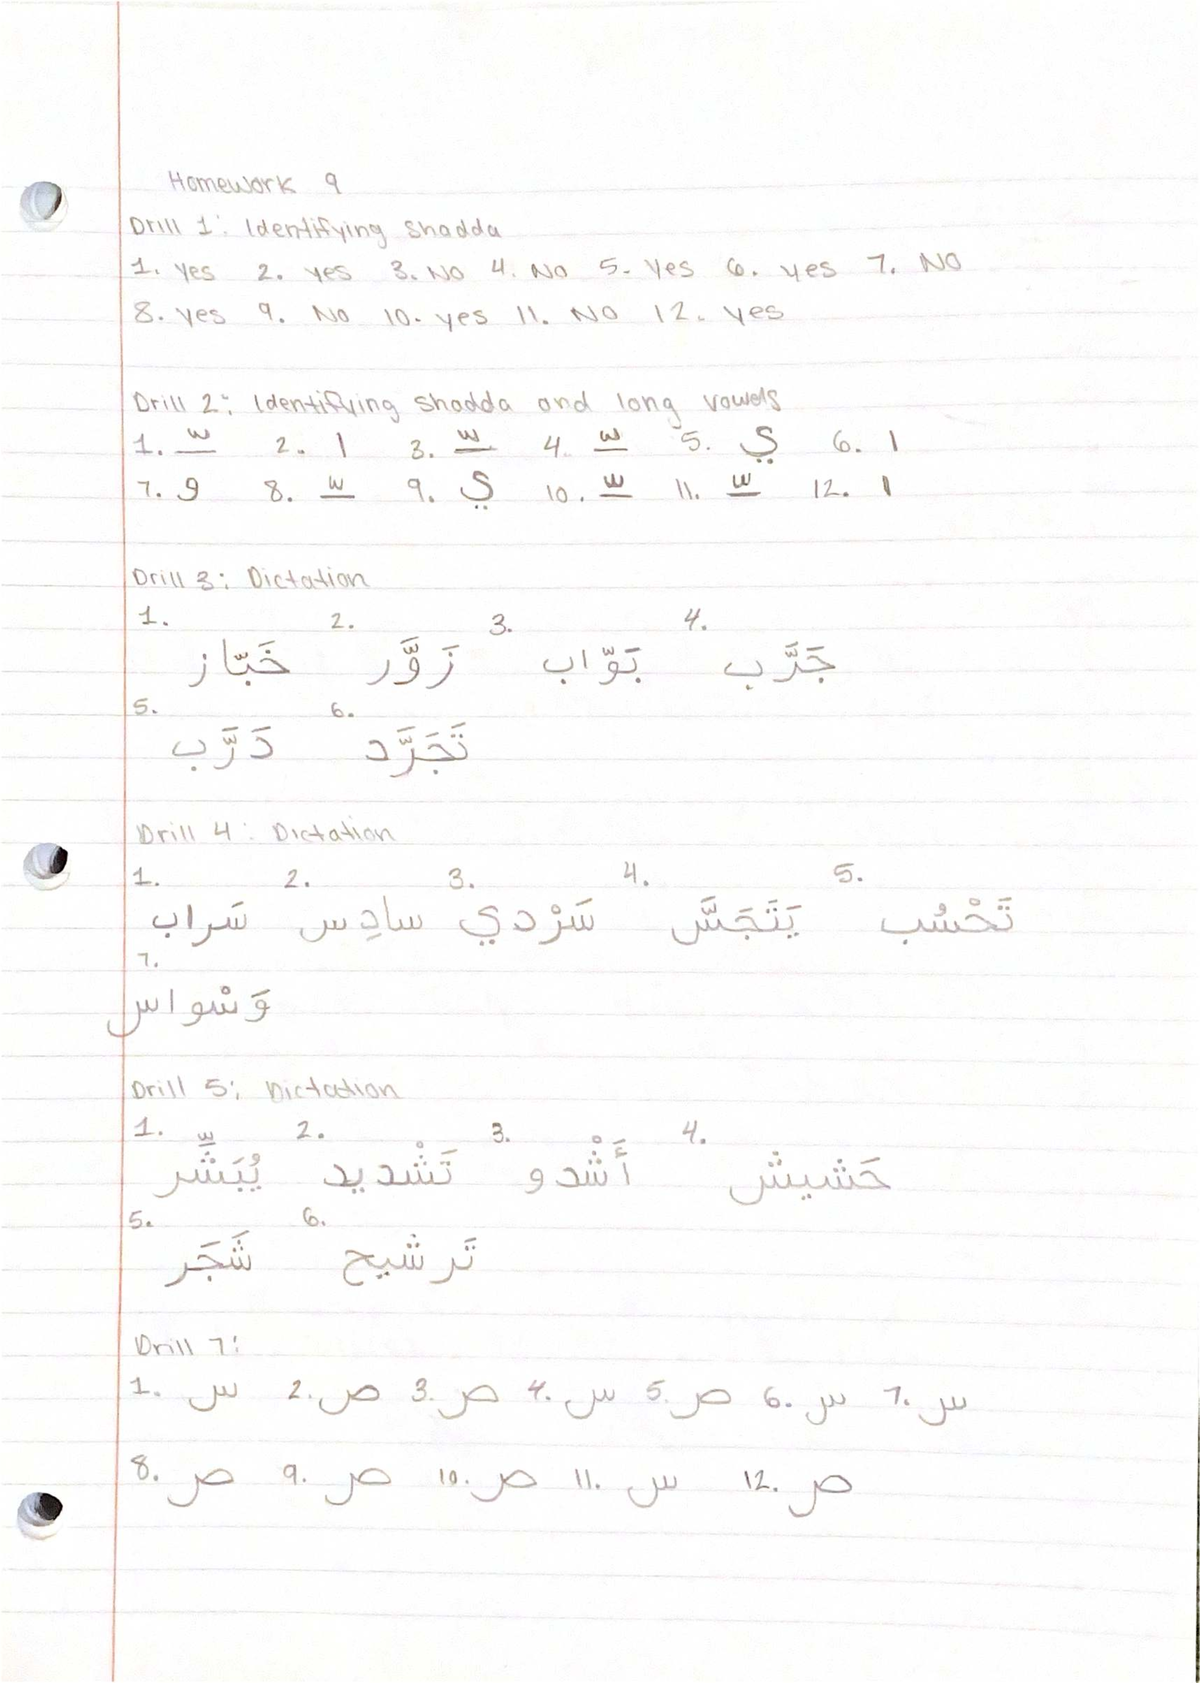 Homework 9
Drill 1: Identifying shadda
1. yes 2. yes 3. No 4. No 5. Yes 6. yes 7. NO
8. yes 9. No 10. yes 11. NO 12. yes
Drill 2: Identifying shadda and long vowels
1. ّ 2. ا 3. ّ 4. ّ 5. ي 6. ا
7. و 8. ّ 9. ي 10. ّ 11. ّ 12. ا
Drill 3: Dictation
1. 2. 3. 4.
خَبّاز زَوَّر بَوّاب جَرَّب
5. 6.
دَرَّب تَجَرَّد
Drill 4: Dictation
1. 2. 3. 4. 5.
سَراب سادِس سَرْدي يَتَجَسَّ تَحْسُب
7.
وَسْواس
Drill 5: Dictation
1. 2. 3. 4.
يُبَشِّر تَشْديد أَشْدو حَشيش
5. 6.
شَجَر تَرشيح
Drill 7:
1. س 2. ص 3. ص 4. س 5. ص 6. س 7. س
8. ص 9. ص 10. ص 11. س 12. ص